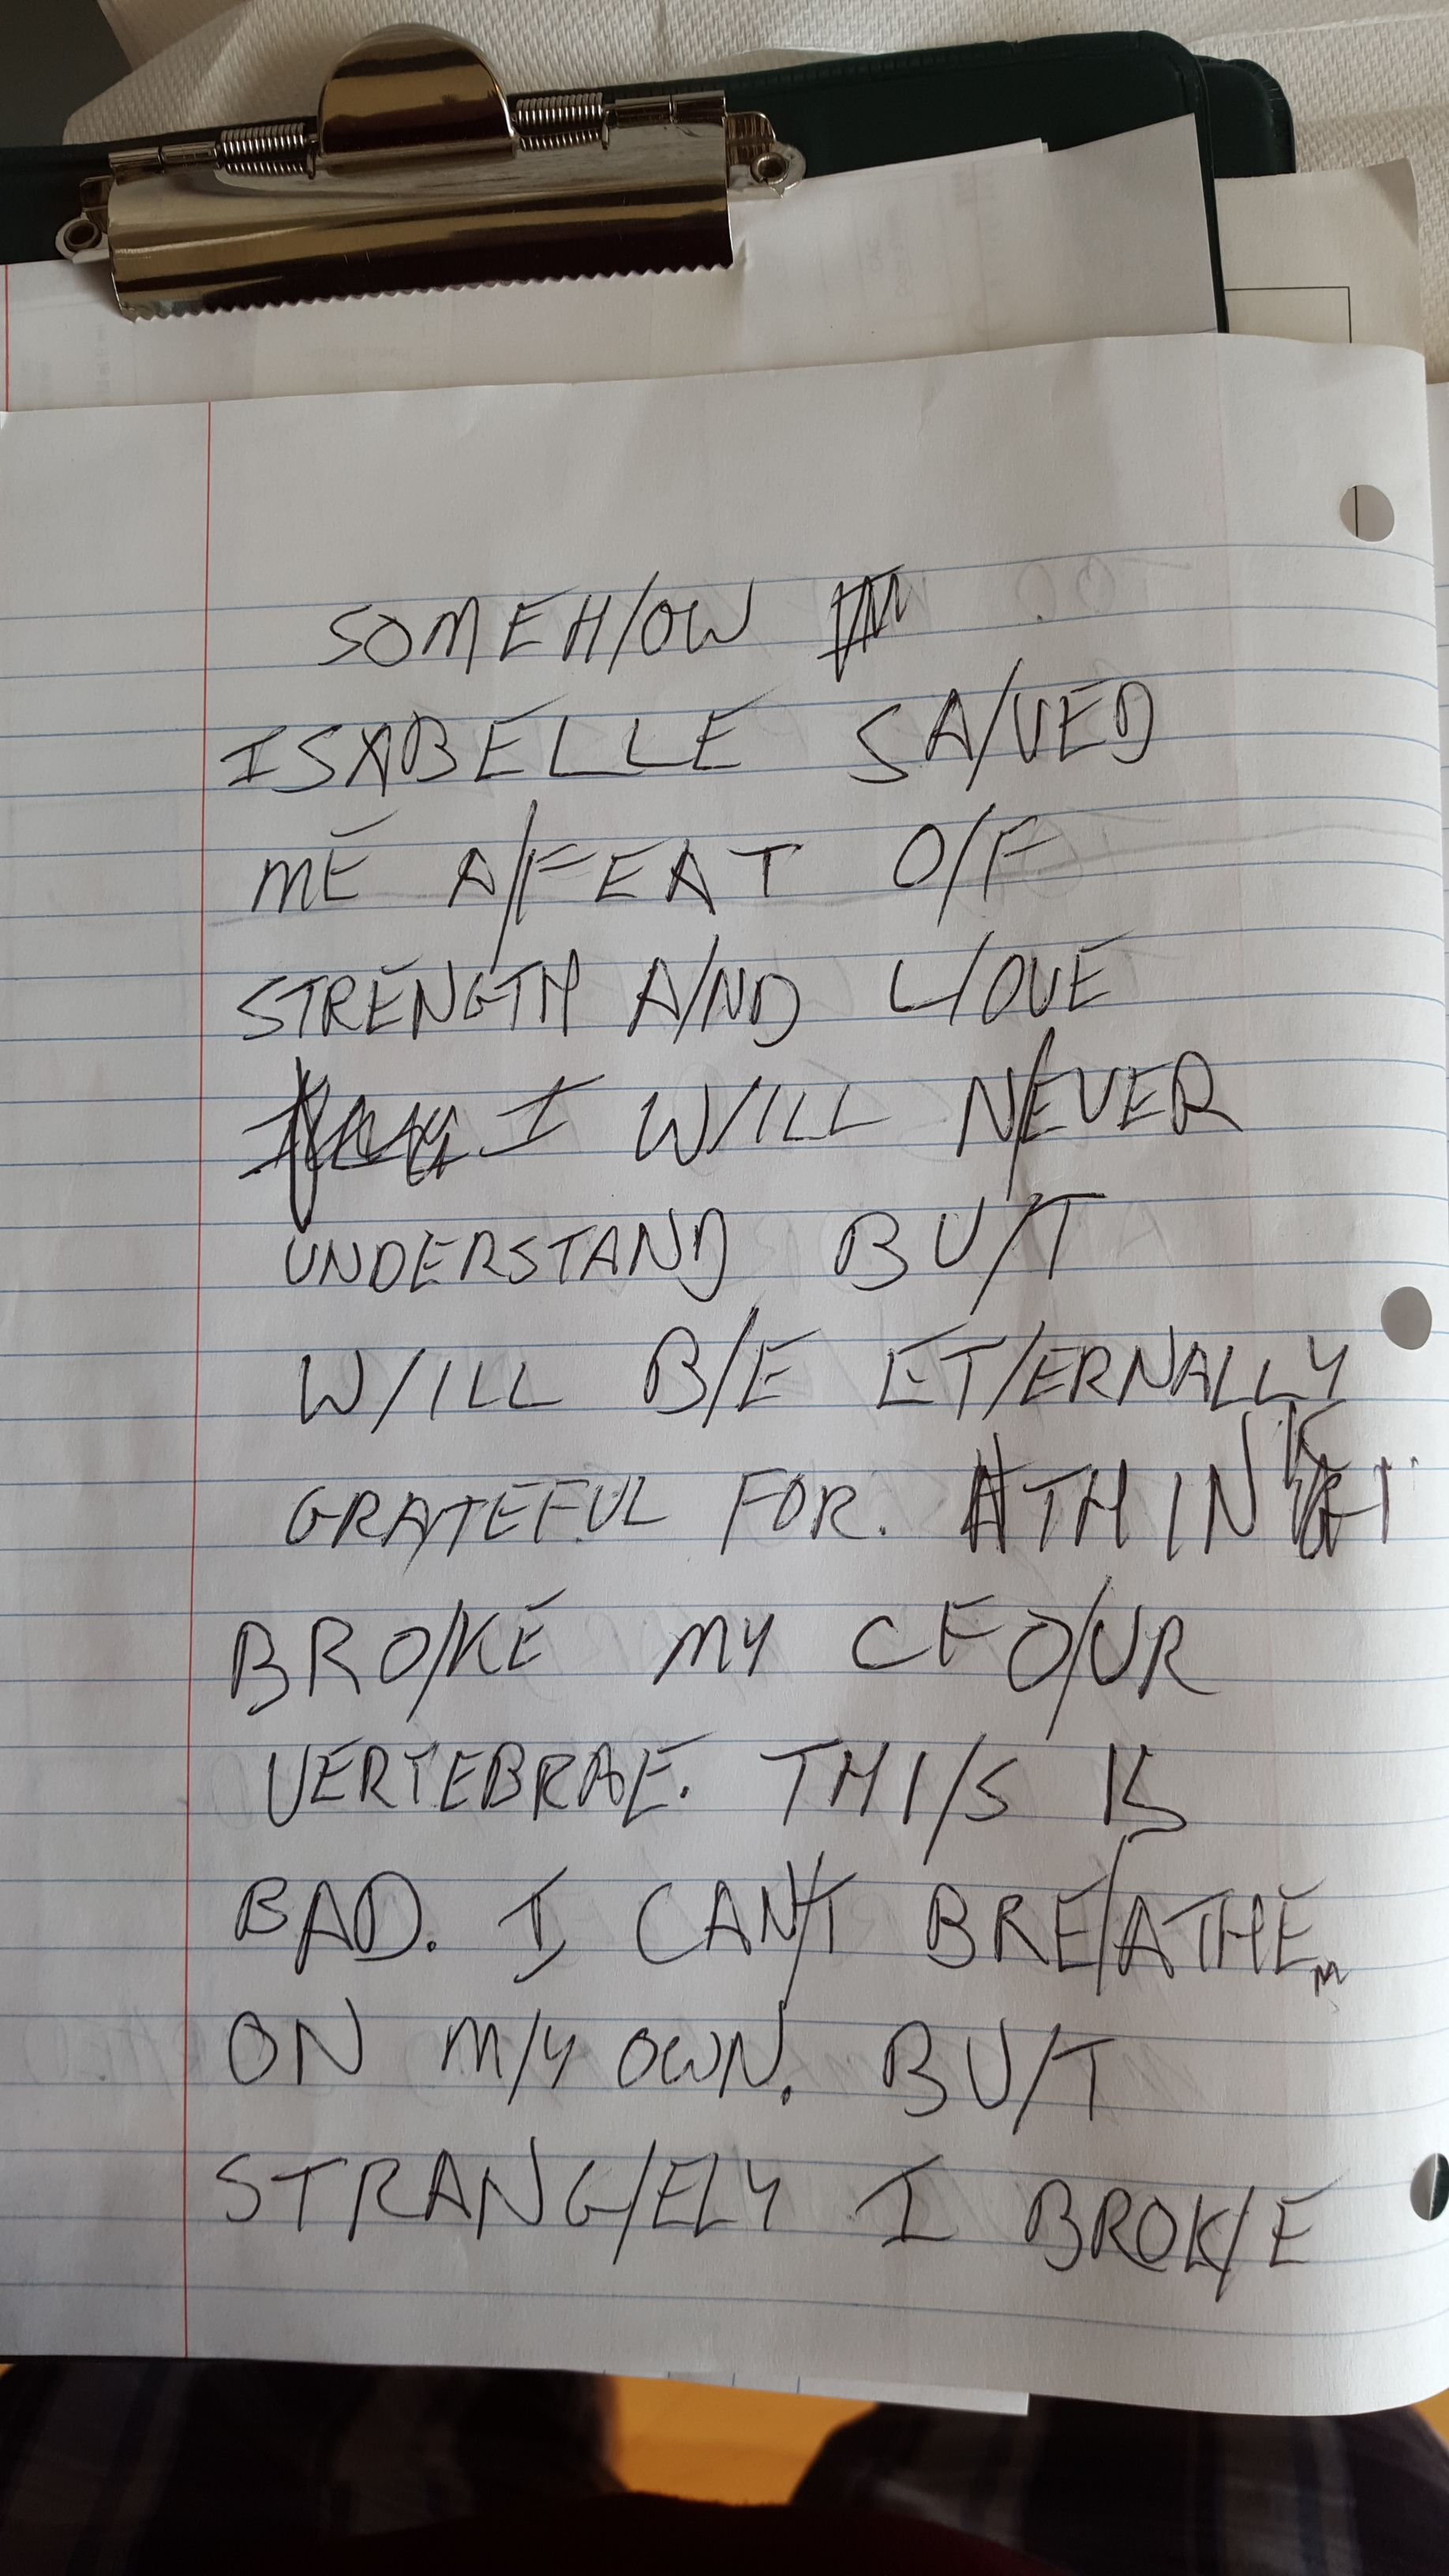 SOMEH/OW
ISABELLE SA/VED
ME A/FEAT O/F
STRENGTH A/ND L/OVE
I W/ILL N/EVER
UNDERSTAND BU/T
W/ILL B/E ET/ERNALLY
GRATEFUL FOR. THINK I
BRO/KE MY C FO/UR
VERTEBRAE. THI/S IS
BAD. I CAN/T BRE/ATHE
ON M/Y OWN. BU/T
STRANG/ELY I BROK/E